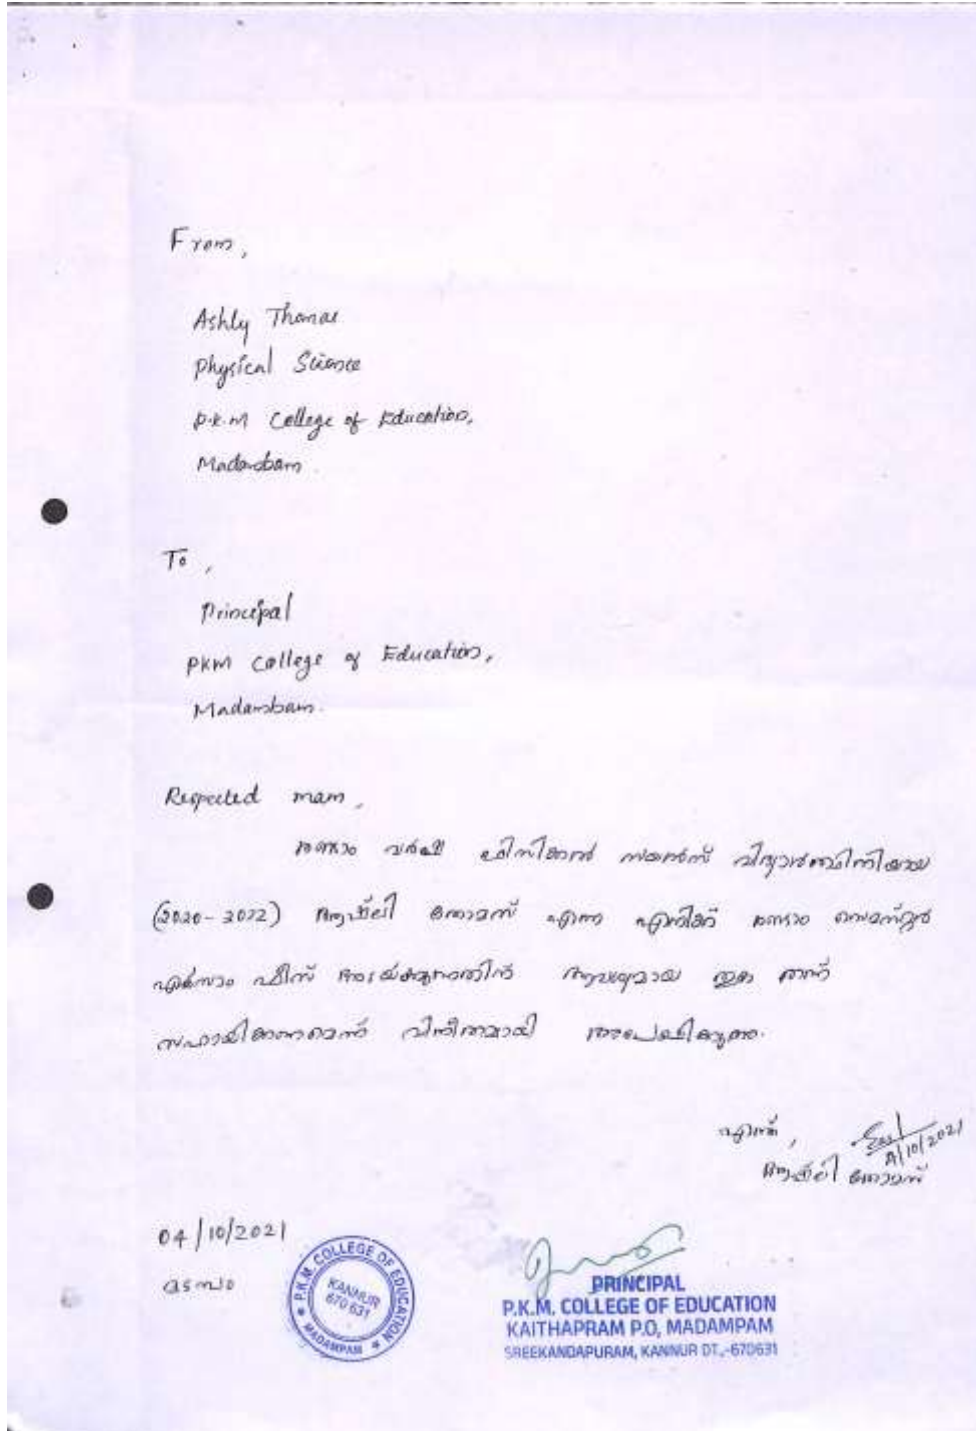 From,
Ashly Thomas
Physical Science
P.K.M College of Education,
Madambam
To,
Principal
PKM College of Education,
Madambam.
Respected mam,
രണ്ടാം വർഷ ഫിസിക്കൽ സയൻസ് വിദ്യാർത്ഥിനിയായ
(2020-2022) ആഷ്ലി തോമസ് എന്ന എനിക്ക് രണ്ടാം സെമസ്റ്റർ
എക്സാം ഫീസ് അടയ്ക്കുന്നതിന് ആവശ്യമായ തുക തന്ന്
സഹായിക്കണമെന്ന് വിനീതമായി അപേക്ഷിക്കുന്നു.
എന്ന്,
4/10/2021
ആഷ്ലി തോമസ്
04/10/2021
മടമ്പം
P.K.M. COLLEGE OF EDUCATION
KANNUR
670 631
MADAMPAM
PRINCIPAL
P.K.M. COLLEGE OF EDUCATION
KAITHAPRAM P.O, MADAMPAM
SREEKANDAPURAM, KANNUR DT.-670631